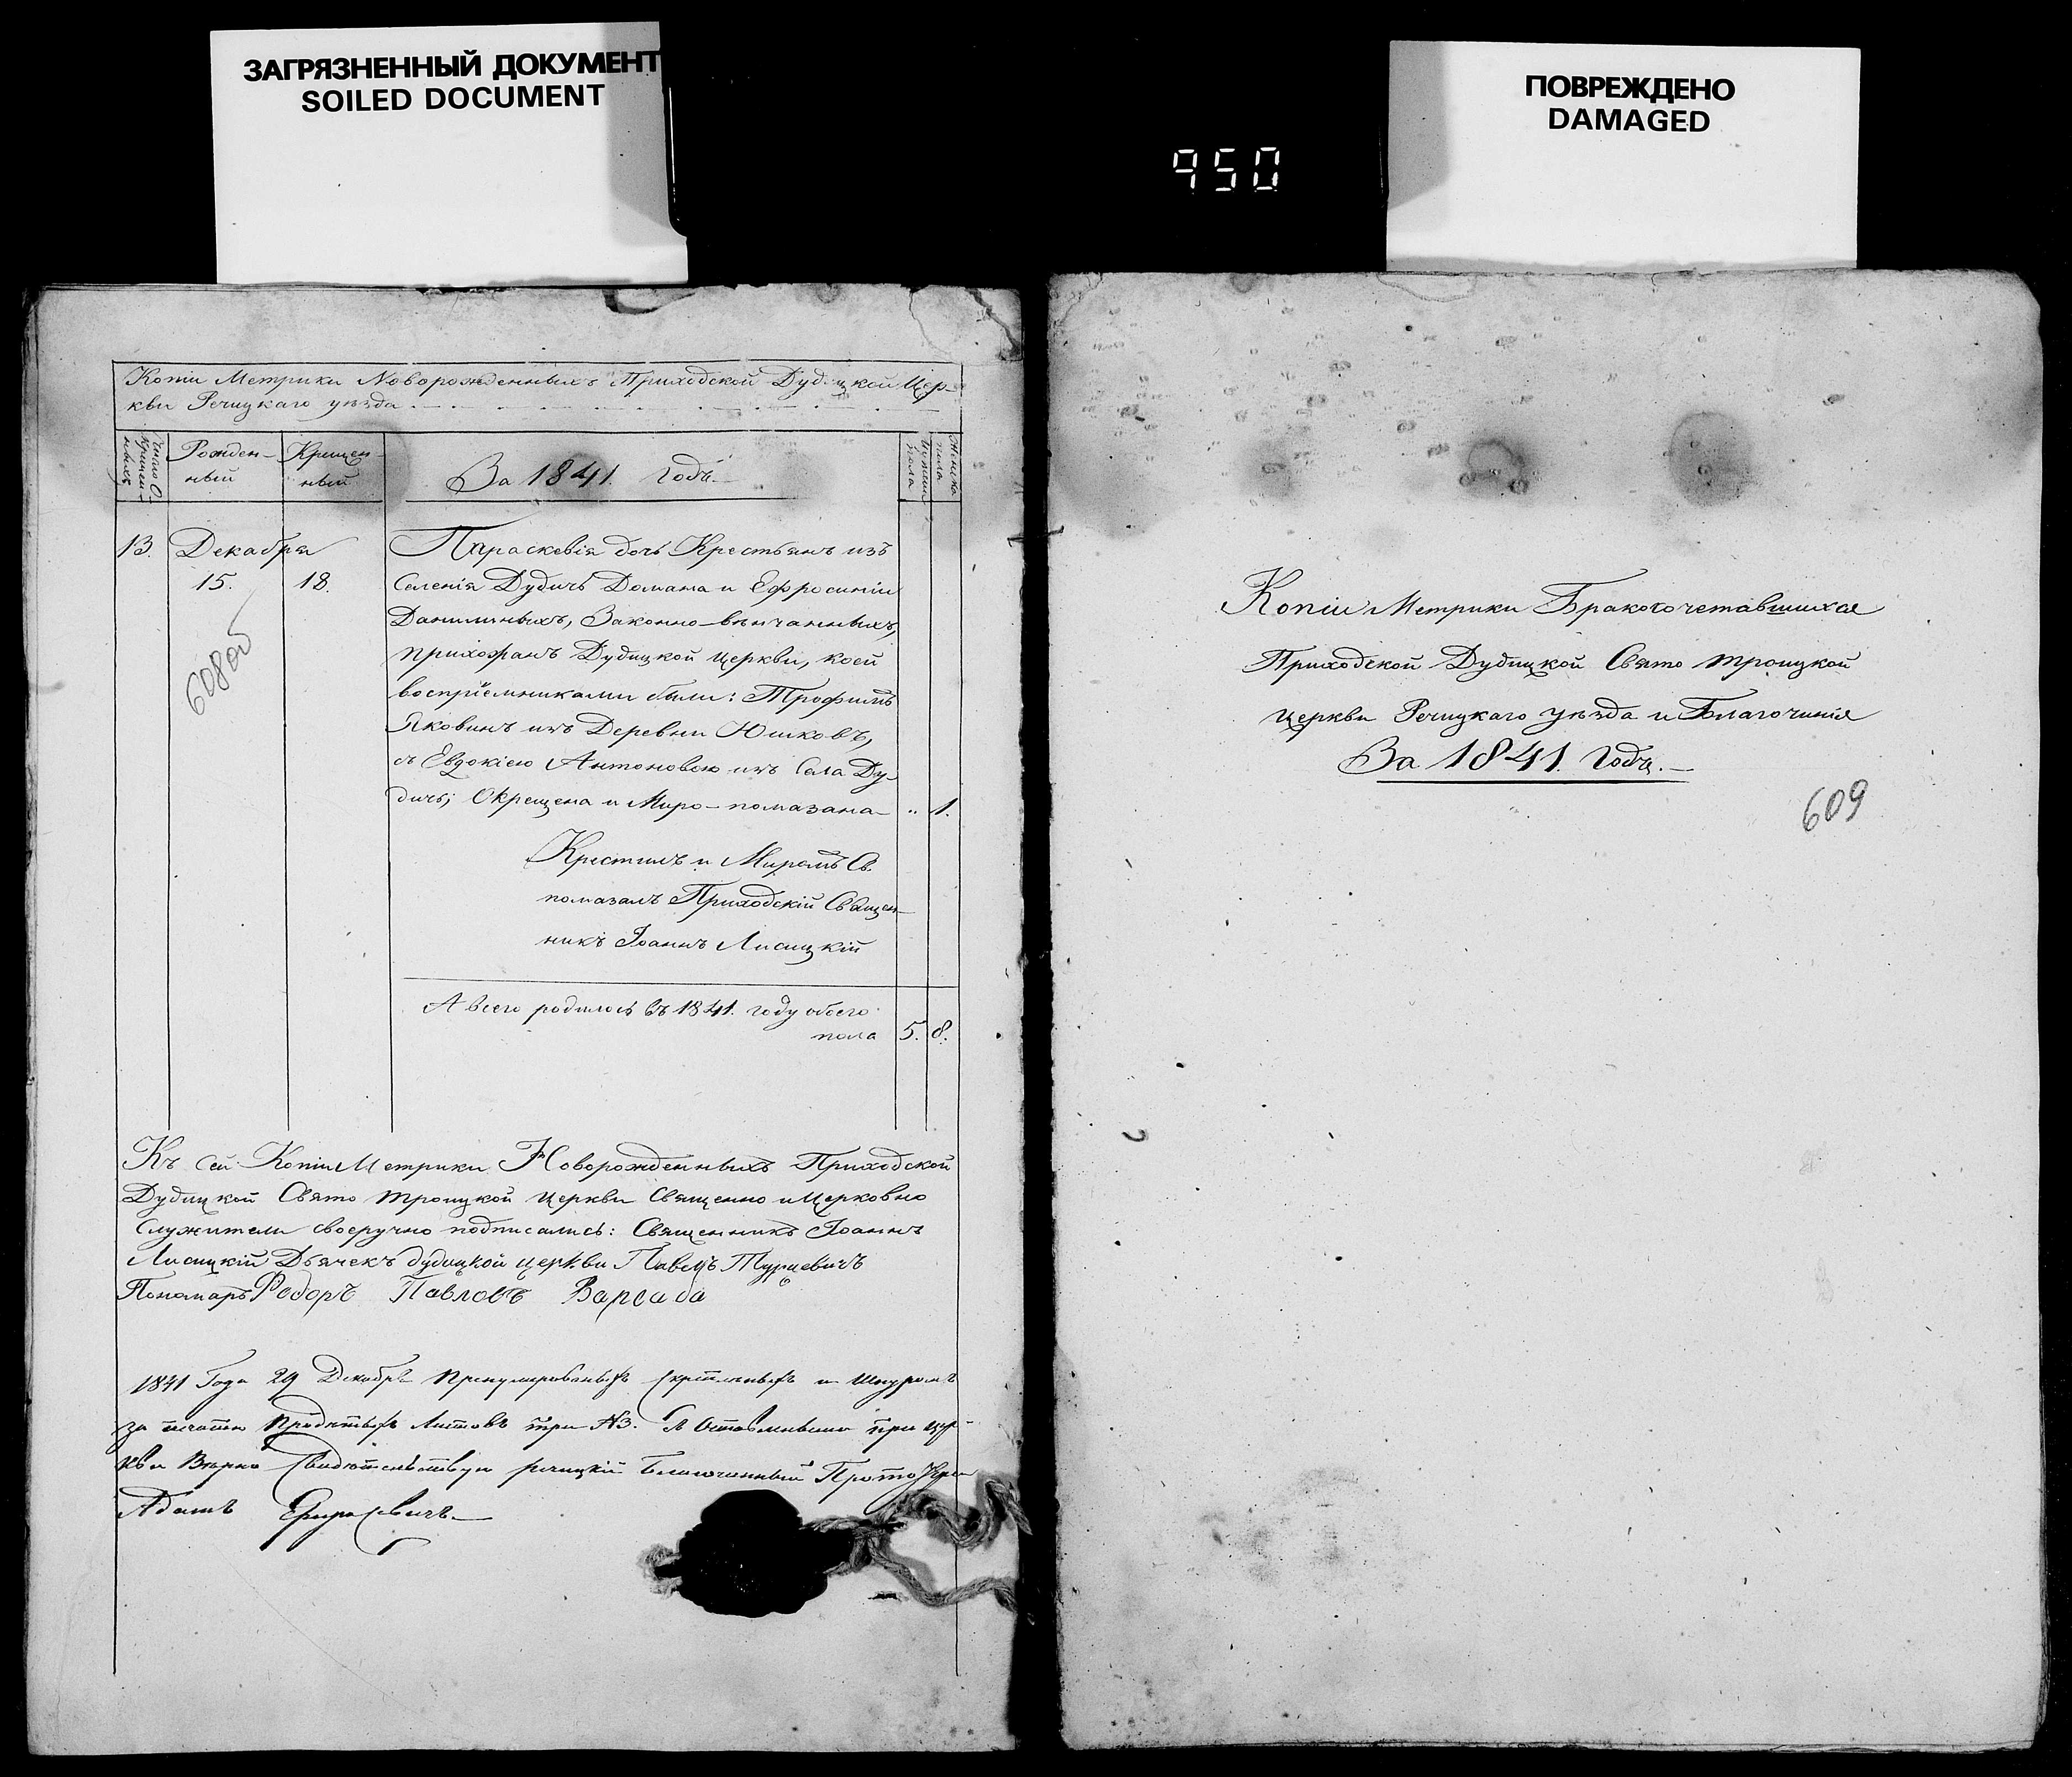 ЗАГРЯЗНЕННЫЙ ДОКУМЕНТ
SOILED DOCUMENT
ПОВРЕЖДЕНО
DAMAGED
950
Копiи Метрики Новорожденныхъ Приходской Дудицкой Цер-
кви Речицкаго уѣзда
Рожден-
ный
Крещен-
ный
За 1841. годъ.
Женска
пола
Мужеска
пола
13. Декабря
15. 18.
608об
Параскевiя дочь Крестьянъ изъ
Селенiя Дудичь Домана и Ефросинiи
Данилиныхъ, Законно-вѣнчанныхъ,
прихожанъ Дудицкой церкви, коей
воспрiемниками были: Трофимъ
Яковинъ изъ Деревни Юшковъ,
съ Евдокiею Антоновою изъ Села Ду-
дичь; Окрещена и Миро-помазана „ 1.
Крестилъ и Миромъ Св.
помазалъ Приходскiй Священ-
никъ Iоаннъ Лисицкiй
А всего родилось въ 1841. году обоего
пола 5. 8.
Къ сей Копiи Метрики Новорожденныхъ Приходской
Дудицкой Свято Троицкой церкви Священно и Церковно
Служители своеручно подписались: Священникъ Iоаннъ
Лисицкiй Дьячекъ дудицкой церкви Павелъ Турцевичъ
Пономарь Федоръ Павловъ Варсаба
1841 Года 29 Декабря
за печатью Листовъ три №3.
Вѣрно речицкiй Благочинный
Адамъ
Копiи Метрики Бракосочетавшихся
Приходской Дудицкой Свято Троицкой
церкви Речицкаго уѣзда и Благочинiя
За 1841. Годъ.
609